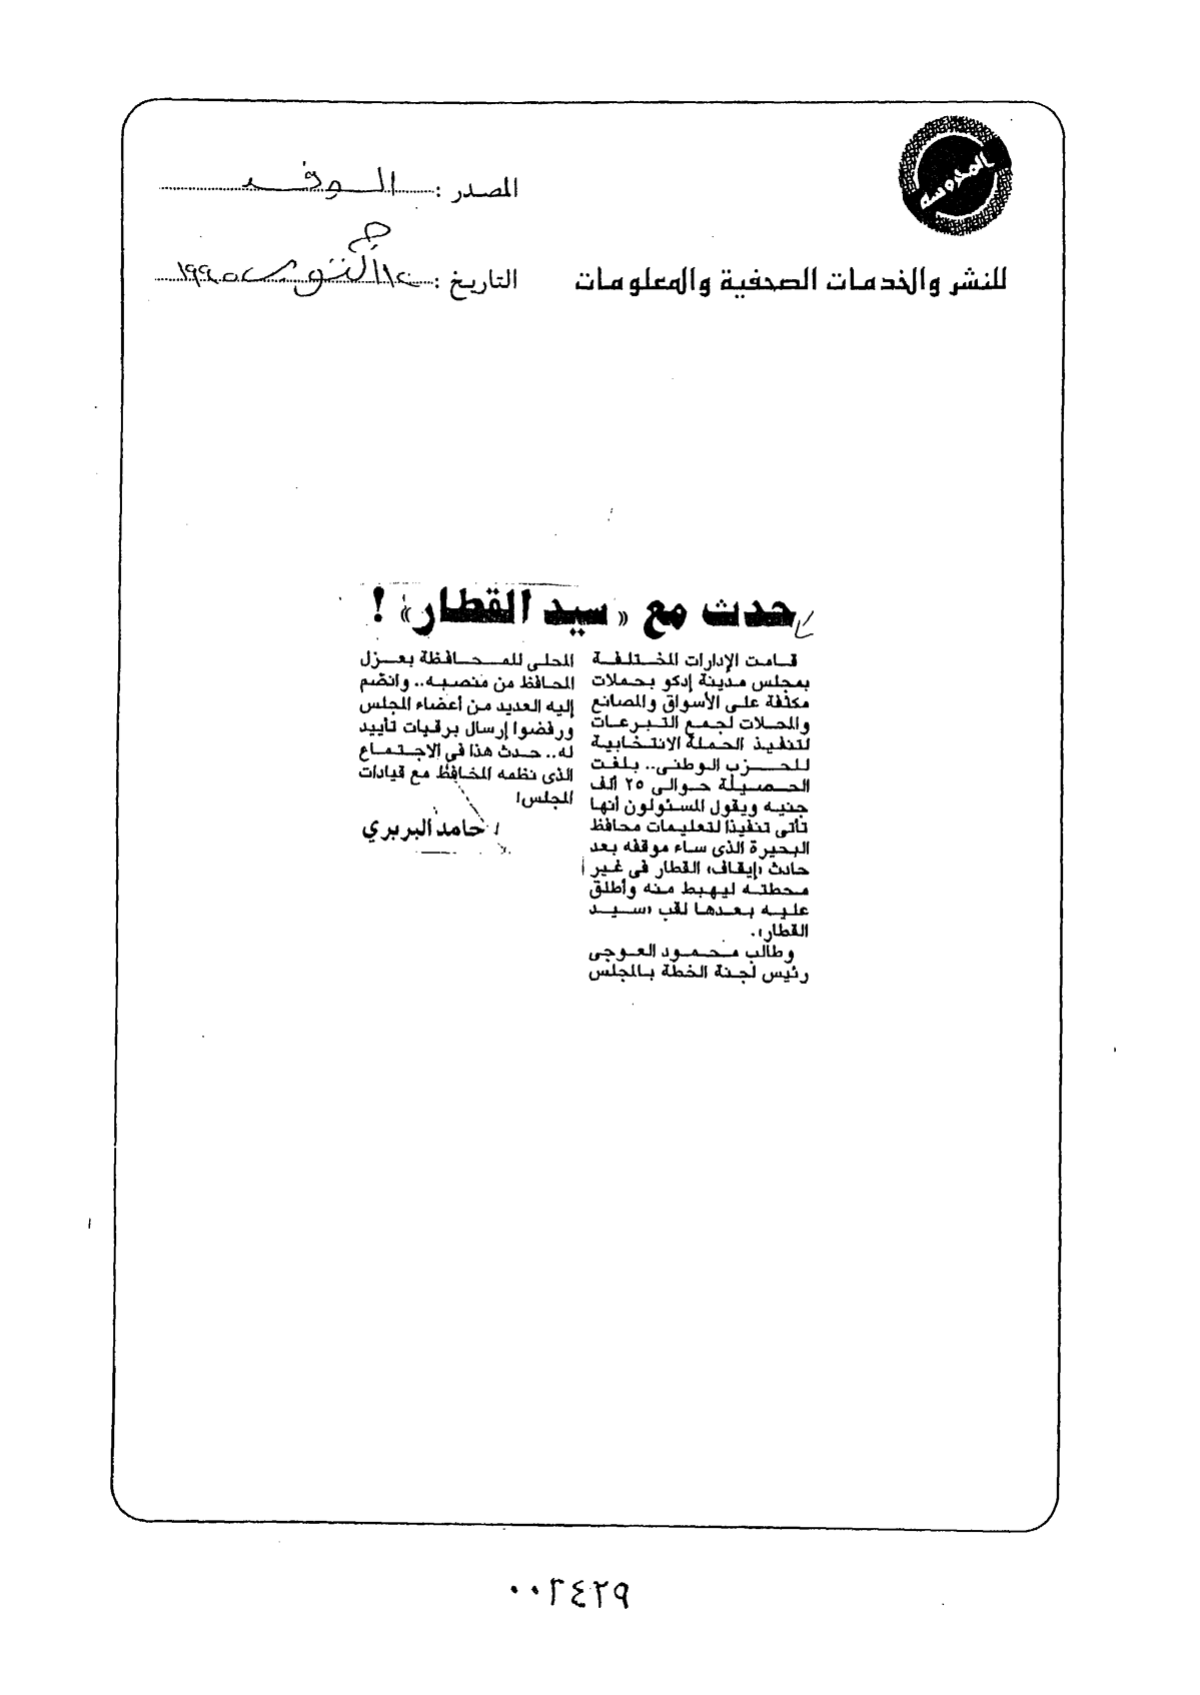 المحروسة
المصدر : الوفد
للنشر والخدمات الصحفية والمعلومات
التاريخ : أكتوبر ١٩٩٥
حدث مع «سيد القطار» !
قامت الإدارات المختلفة
بمجلس مدينة إدكو بحملات
مكثفة على الأسواق والمصانع
والمحلات لجمع التبرعات
لتنفيذ الحملة الانتخابية
للحزب الوطنى.. بلغت
الحصيلة حوالى ٢٥ ألف
جنيه ويقول المسئولون أنها
تأتى تنفيذا لتعليمات محافظ
البحيرة الذى ساء موقفه بعد
حادث «إيقاف» القطار فى غير
محطته ليهبط منه وأطلق
عليه بعدها لقب «سيد
القطار».
وطالب محمود العوجى
رئيس لجنة الخطة بالمجلس
المحلى للمحافظة بعزل
المحافظ من منصبه.. وانضم
إليه العديد من أعضاء المجلس
ورفضوا إرسال برقيات تأييد
له.. حدث هذا فى الاجتماع
الذى نظمه المحافظ مع قيادات
المجلس!
حامد البربري
٠٠٢٤٢٩